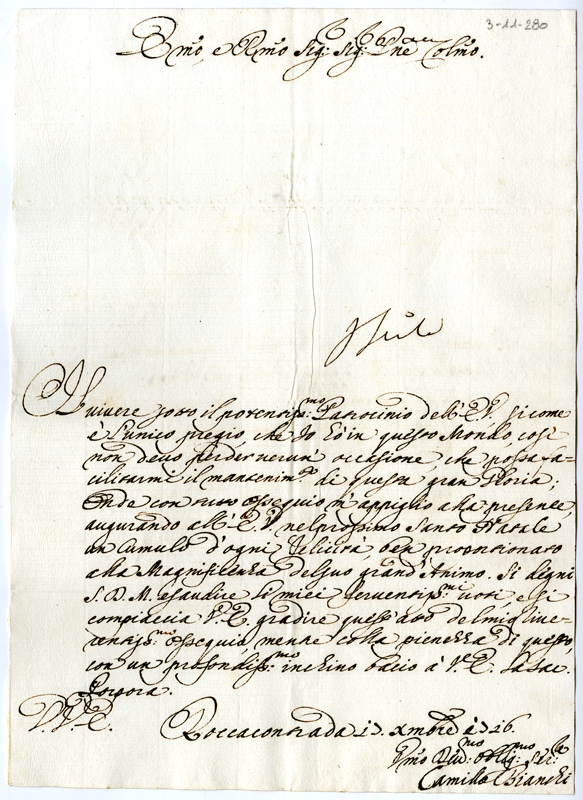 3-11-280
Em̃o, e Rm̃o Sig: Sig: Pñe Colm̃o.
Il vivere sotto il potentiss:mo Patrocinio dell'E.V. sicome
è l'unico pregio, che Io hò in questo Mondo, così
non devo perder verun' occasione, che possa fa-
cilitarmi il mantenim.to di questa gran Gloria;
Onde con tutto ossequio m'appiglio alla presente,
augurando all'E.V. nel prossimo Santo Natale
un Cumulo d'ogni felicità ben proportionato
alla Magnificenza del suo grand'Animo. Si degni
S.D.M. esaudire li miei ferventiss:mi voti e si
compiaccia V.E. gradire quest'atto del mio rive-
rentiss:mo ossequio, mentre colla pienezza di questo,
con un profondiss:mo inchino bacio à V.E. la Sac.
Porpora.
D.V.E.
Roccacontrada 17. Xmbre 1726.
Vm̃o Div:mo Oblig:mo Ser:e
Camillo Bianchi